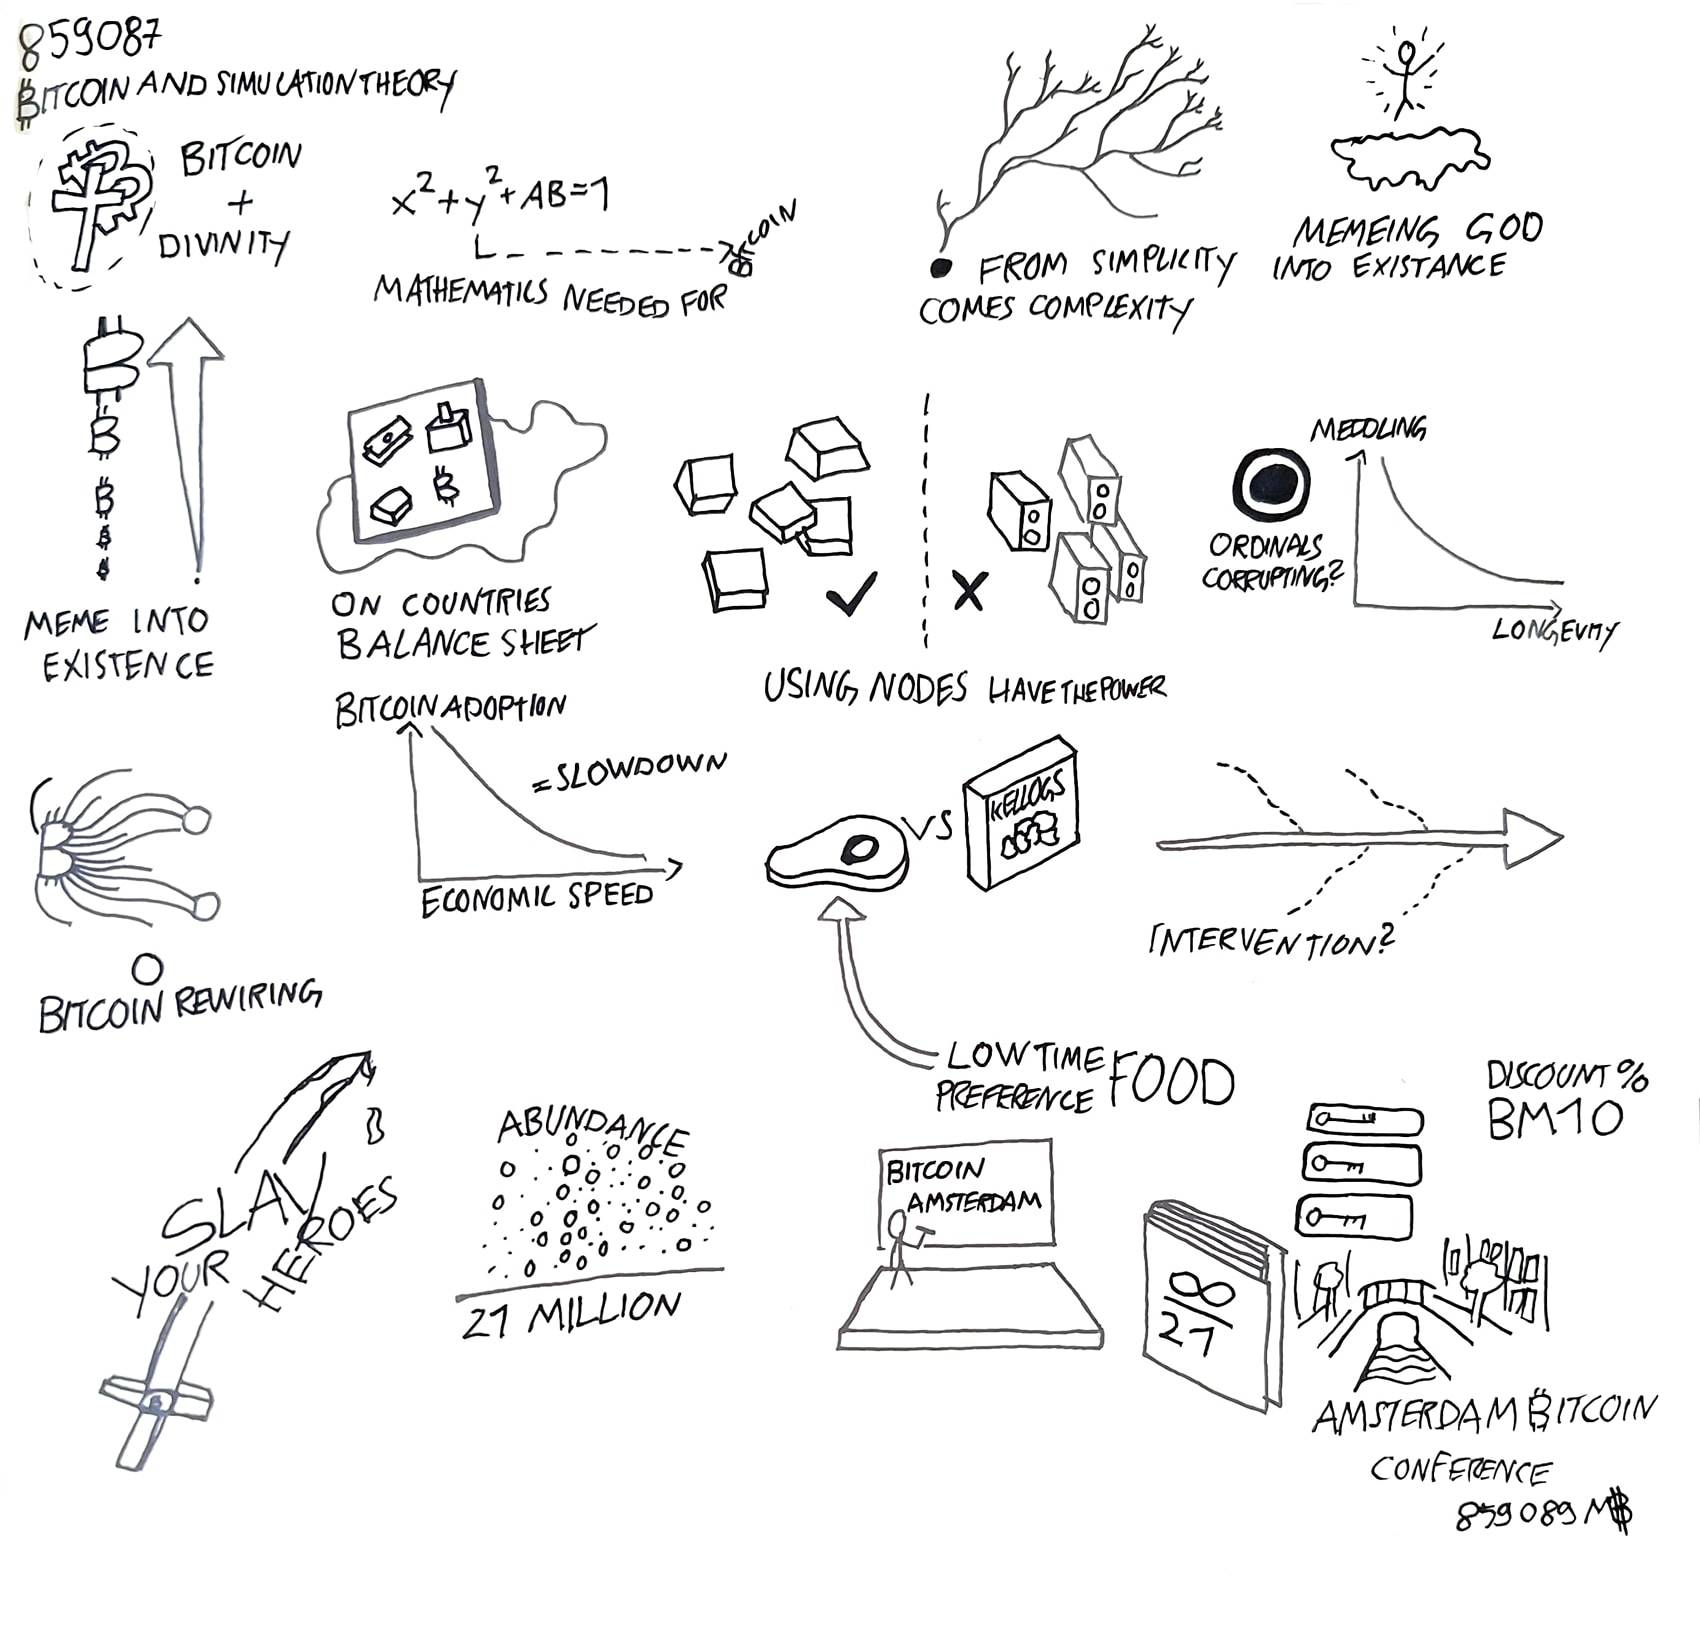 859087
₿ITCOIN AND SIMULATION THEORY
BITCOIN
+
DIVINITY
x²+y²+AB=1
COIN
MATHEMATICS NEEDED FOR
FROM SIMPLICITY
COMES COMPLEXITY
MEMEING GOD
INTO EXISTANCE
MEME INTO
EXISTENCE
ON COUNTRIES
BALANCE SHEET
USING NODES HAVE THE POWER
ORDINALS
CORRUPTING?
MEDDLING
LONGEVITY
BITCOIN REWIRING
BITCOIN ADOPTION
=SLOWDOWN
ECONOMIC SPEED
VS
KELLOGS
LOW TIME
PREFERENCE FOOD
INTERVENTION?
SLAY
YOUR
HEROES
ABUNDANCE
21 MILLION
BITCOIN
AMSTERDAM
∞
21
DISCOUNT %
BM10
AMSTERDAM ₿ITCOIN
CONFERENCE
859089 M₿